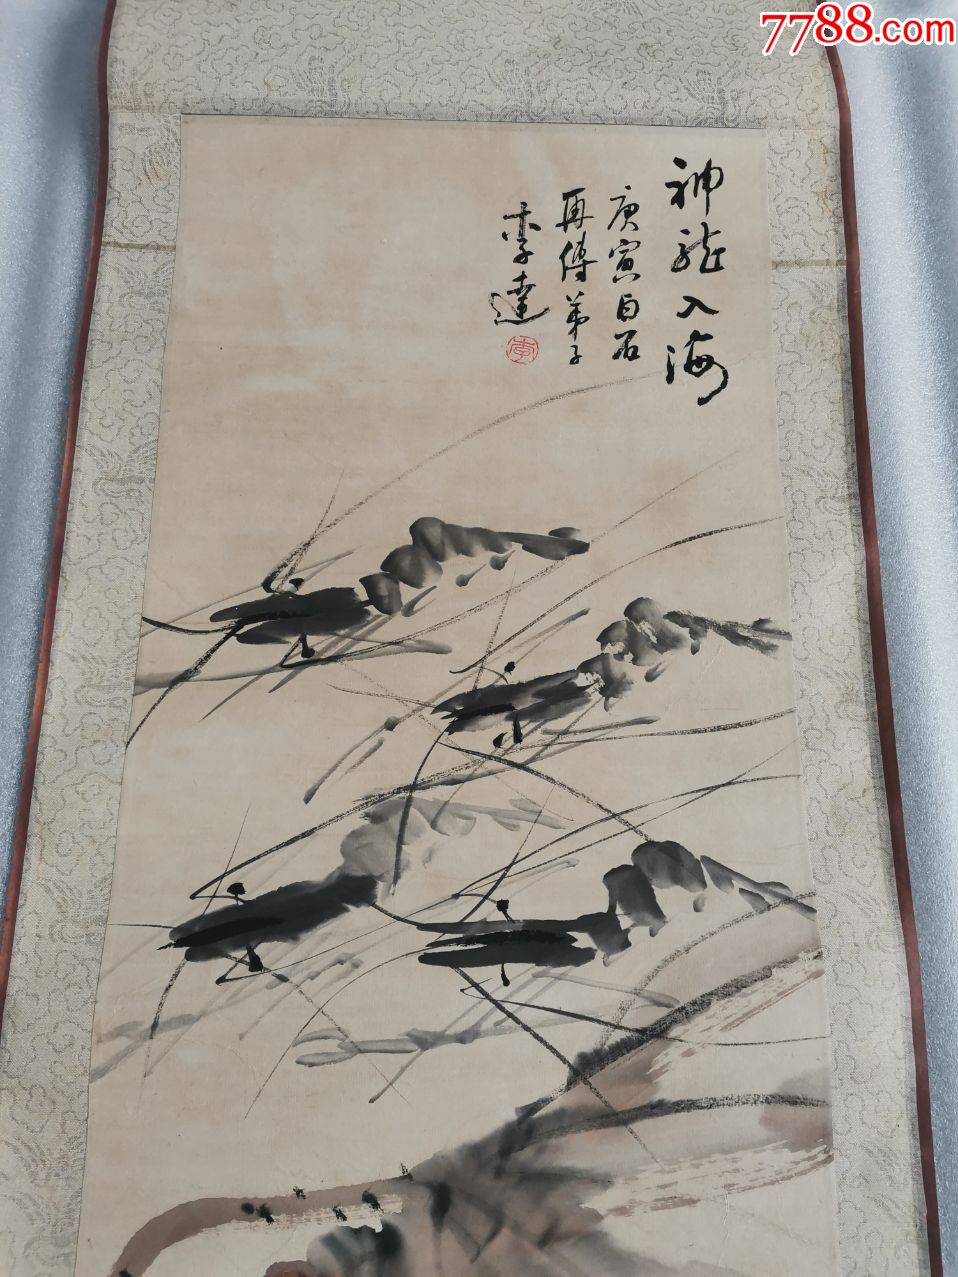 7788.com
神龙入海
庚寅白石
再傳弟子
李達
李